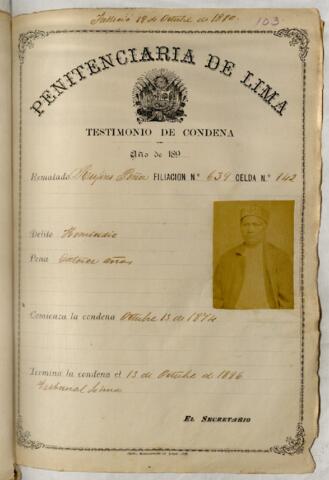 Falleció 18 de Octubre de 1880.
103
PENITENCIARIA DE LIMA
TESTIMONIO DE CONDENA
Año de 189
Rematado Rufino Peña FILIACION N.° 634 CELDA N.° 142
Delito Homicidio
Pena catorce años
Comienza la condena Octubre 13 de 1874
Termina la condena el 13 de Octubre de 1886
Tribunal
EL SECRETARIO